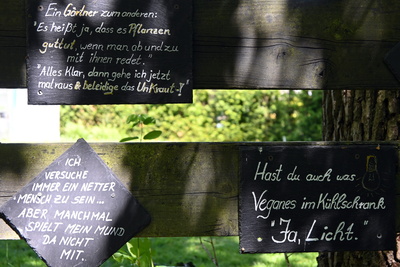 Ein Gärtner zum anderen:
"Es heißt ja, dass es Pflanzen
guttut, wenn man ab und zu
mit ihnen redet."
"Alles Klar, dann gehe ich jetzt
mal raus & beleidige das Unkraut!"
ICH
VERSUCHE
IMMER EIN NETTER
MENSCH ZU SEIN...
ABER, MANCHMAL
SPIELT MEIN MUND
DA NICHT
MIT.
Hast du auch was
Veganes im Kühlschrank
"Ja, Licht."